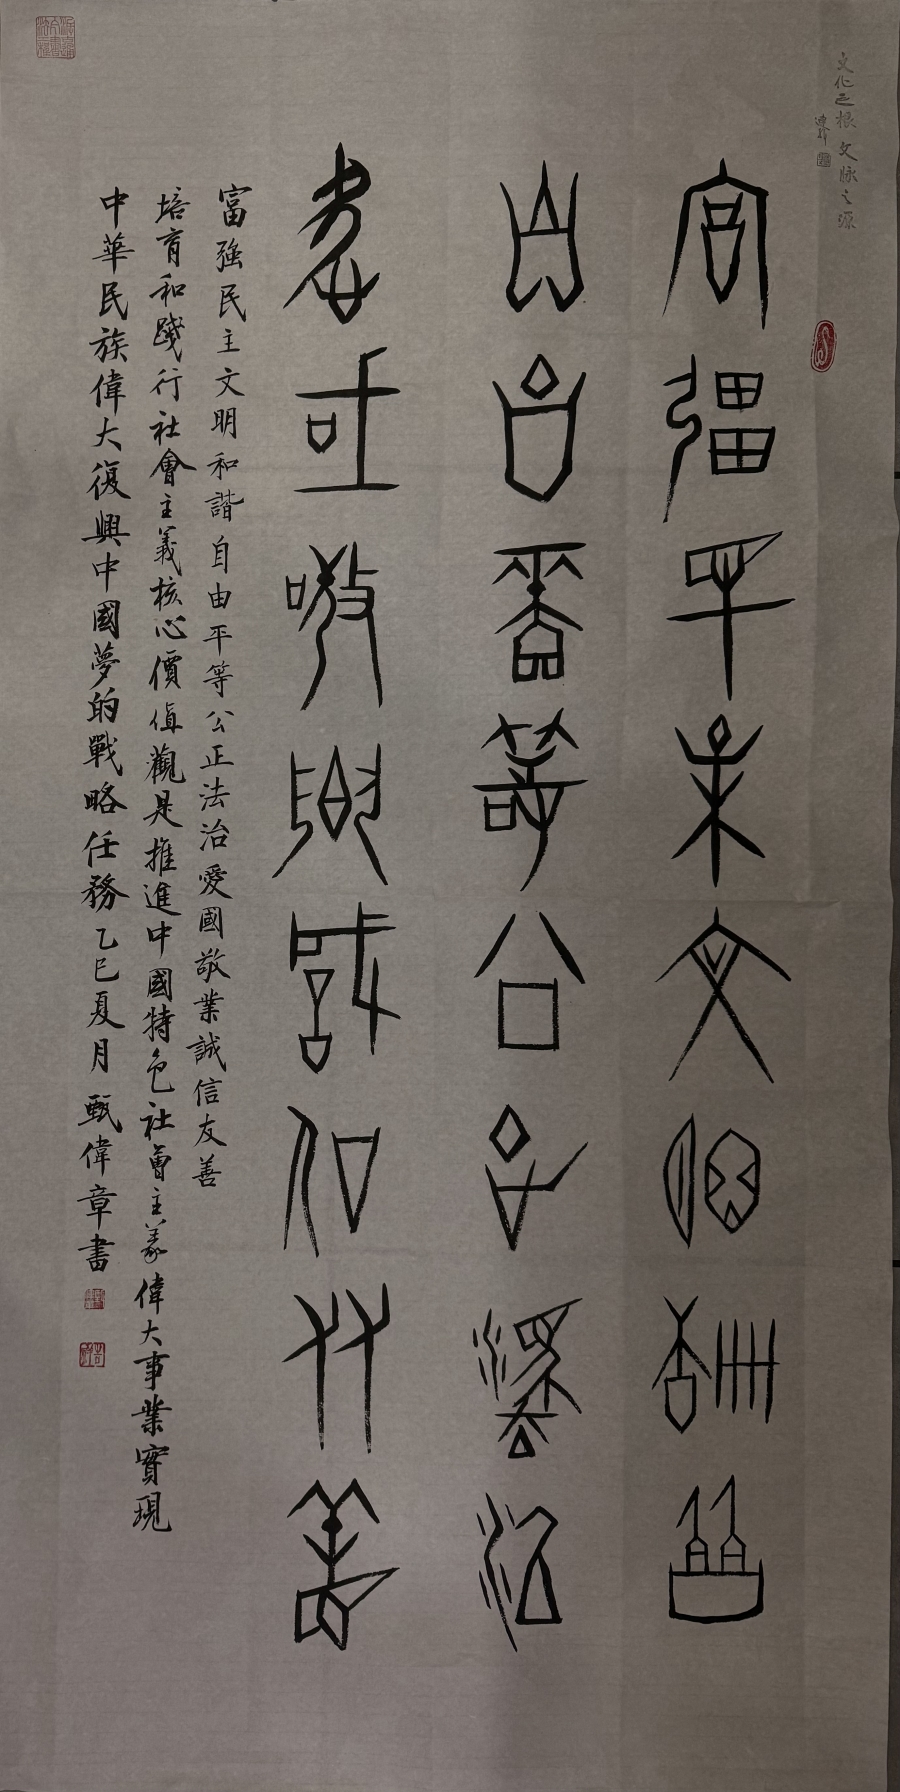 文化之根文脉之源
富強民主文明和諧
自由平等公正法治
愛國敬業誠信友善
富強民主文明和諧自由平等公正法治愛國敬業誠信友善
培育和踐行社會主義核心價值觀是推進中國特色社會主義偉大事業實現
中華民族偉大復興中國夢的戰略任務乙巳夏月甄偉章書